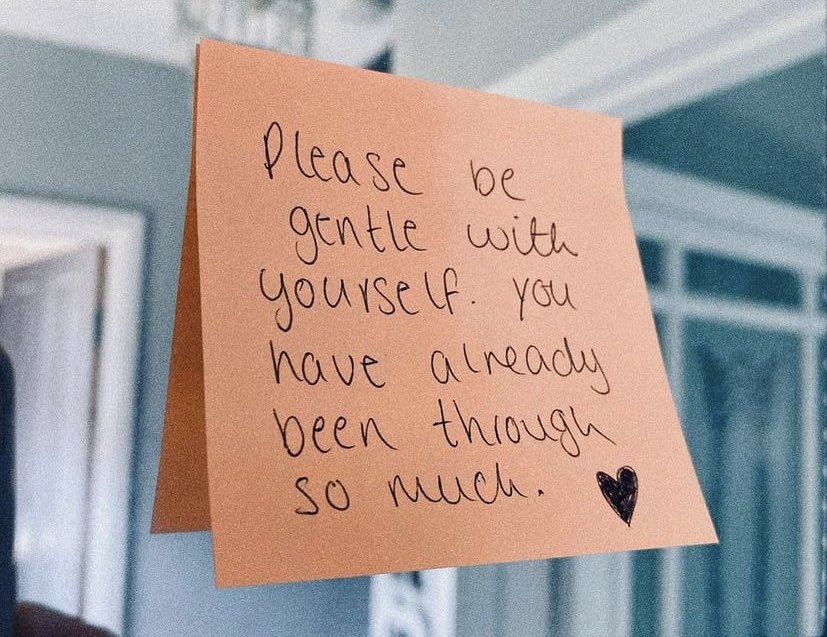 Please be
gentle with
yourself. you
have already
been through
so much.